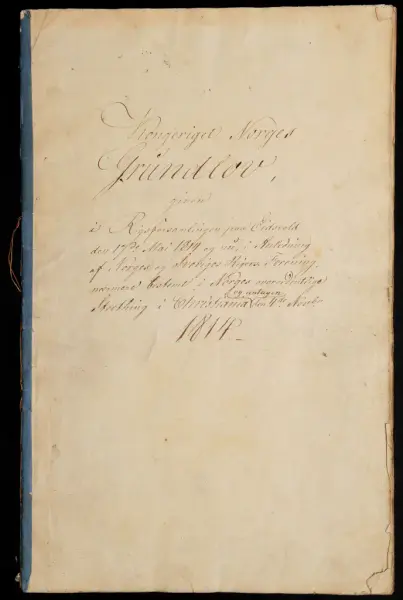 Kongeriget Norges
Grundlov,
given
i Rigsforsamlingen paa Eidsvold
den 17de Mai 1814 og nu, i Anledning
af Norges og Sveriges Rigers Forening,
nærmere bestemt i Norges overordentlige
Storthing i Christiania og antagen den 4de Novbr
1814.